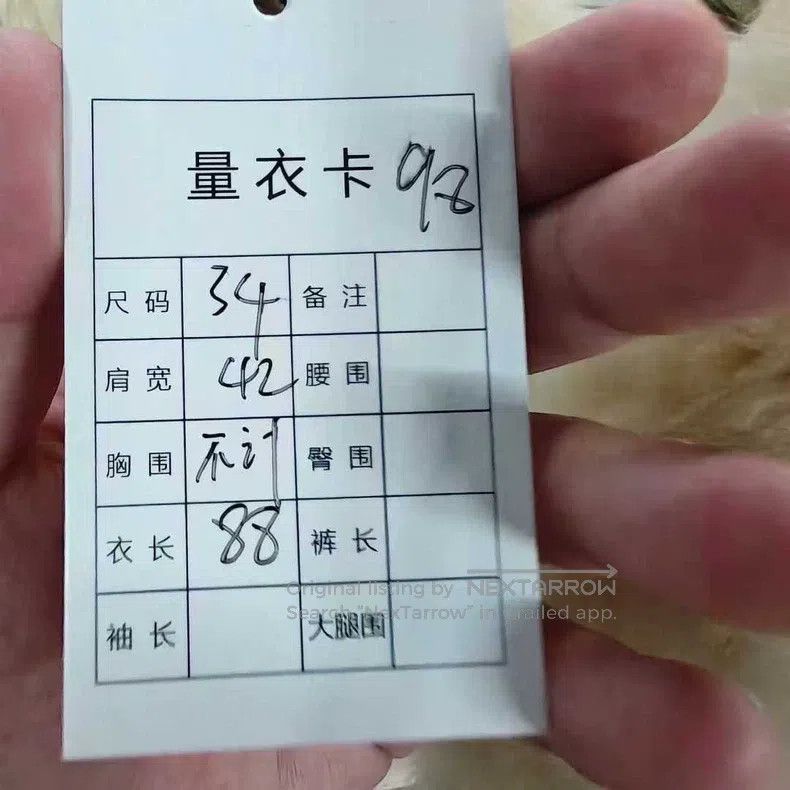 量衣卡 98
尺码 34 备注
肩宽 42 腰围
胸围 不计 臀围
衣长 88 裤长
袖长 大腿围
Original listing by NEXTARROW
Search "NexTarrow" in Grailed app.